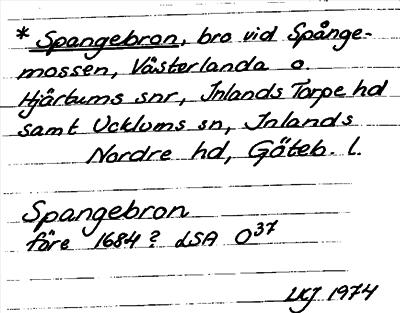 * Spangebron, bro vid Spånge-
mossen, Västerlanda o.
Hjärtums snr, Inlands Torpe hd
samt Ucklums sn, Inlands
Nordre hd, Göteb. l.
Spangebron
före 1684? LSA O37
LKJ 1974